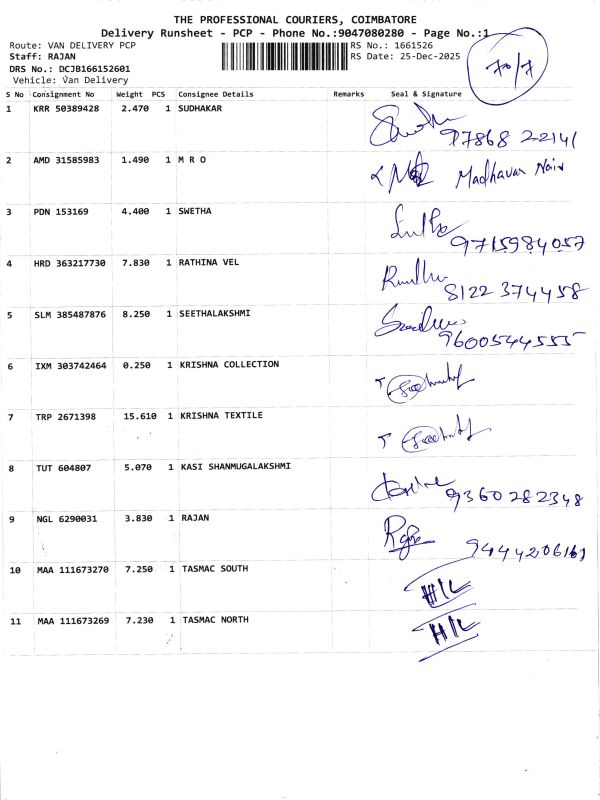 THE PROFESSIONAL COURIERS, COIMBATORE
Delivery Runsheet - PCP - Phone No.:9047080280 - Page No.:1
Route: VAN DELIVERY PCP
RS No.: 1661526
Staff: RAJAN
RS Date: 25-Dec-2025
DRS No.: DCJB166152601
Vehicle: Van Delivery
70/7
S No Consignment No Weight PCS Consignee Details Remarks Seal & Signature
1 KRR 50389428 2.470 1 SUDHAKAR
97868 22141
2 AMD 31585983 1.490 1 M R O
Madhavan Nair
3 PDN 153169 4.400 1 SWETHA
9715984057
4 HRD 363217730 7.830 1 RATHINA VEL
8122 374458
5 SLM 385487876 8.250 1 SEETHALAKSHMI
9600544555
6 IXM 303742464 0.250 1 KRISHNA COLLECTION
7 TRP 2671398 15.610 1 KRISHNA TEXTILE
8 TUT 604807 5.070 1 KASI SHANMUGALAKSHMI
9360282348
9 NGL 6290031 3.830 1 RAJAN
9444206161
10 MAA 111673270 7.250 1 TASMAC SOUTH
H/L
11 MAA 111673269 7.230 1 TASMAC NORTH
H/L